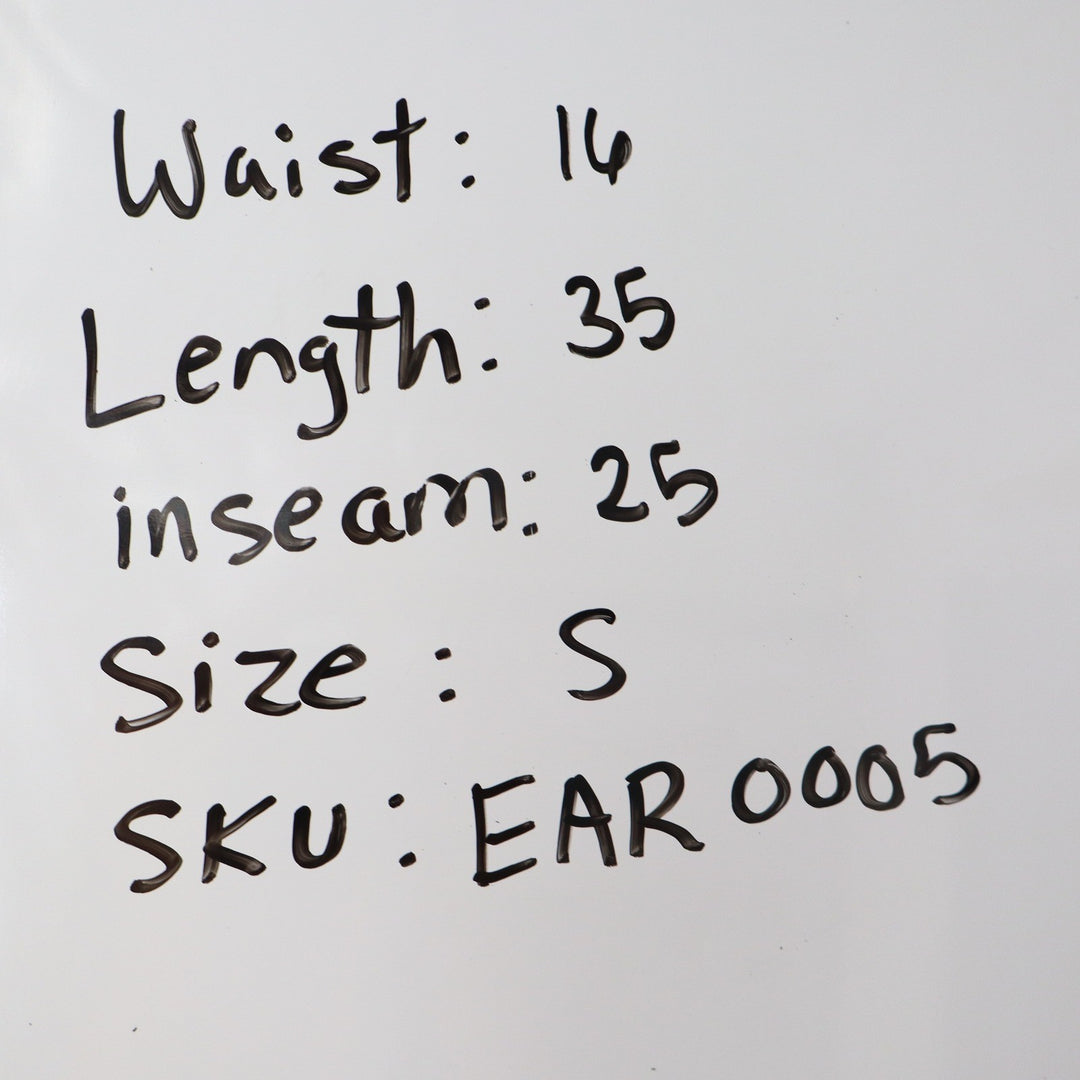 Waist: 16
Length: 35
inseam: 25
Size: S
SKU: EAR 0005